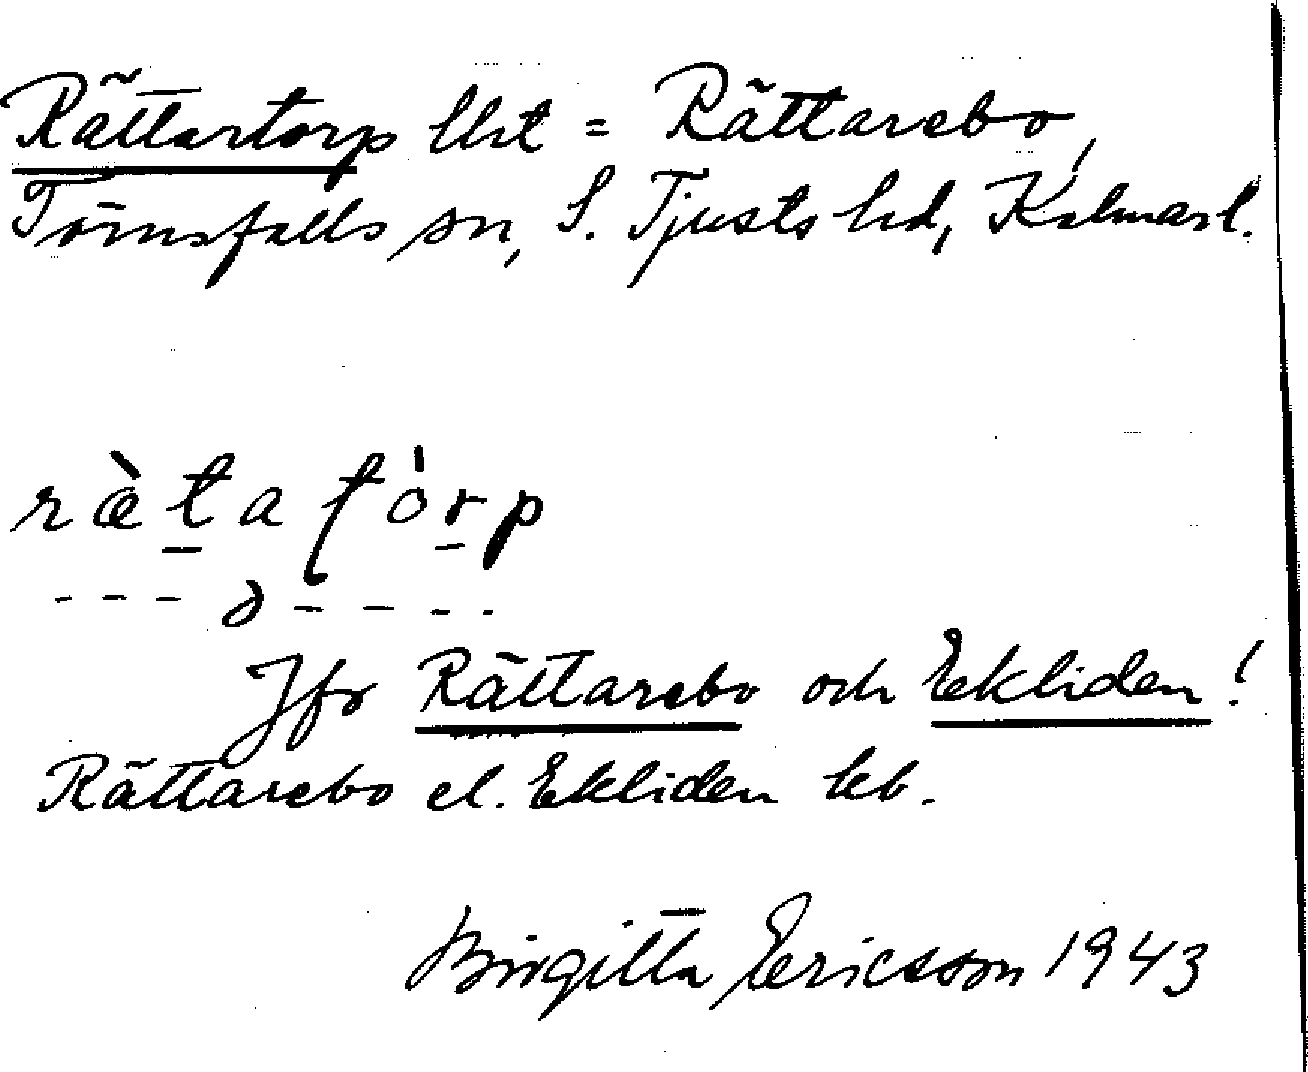 Rättartorp lht = Rättarebo,
Törnsfalls sn, S. Tjusts hd, Kalmar l.
rὰ̀t̠a ƭór̠p
- - - ə - - - -
Jfr Rättarebo och Ekliden!
Rättarebo el. Ekliden leb.
Birgitta Ericsson 1943